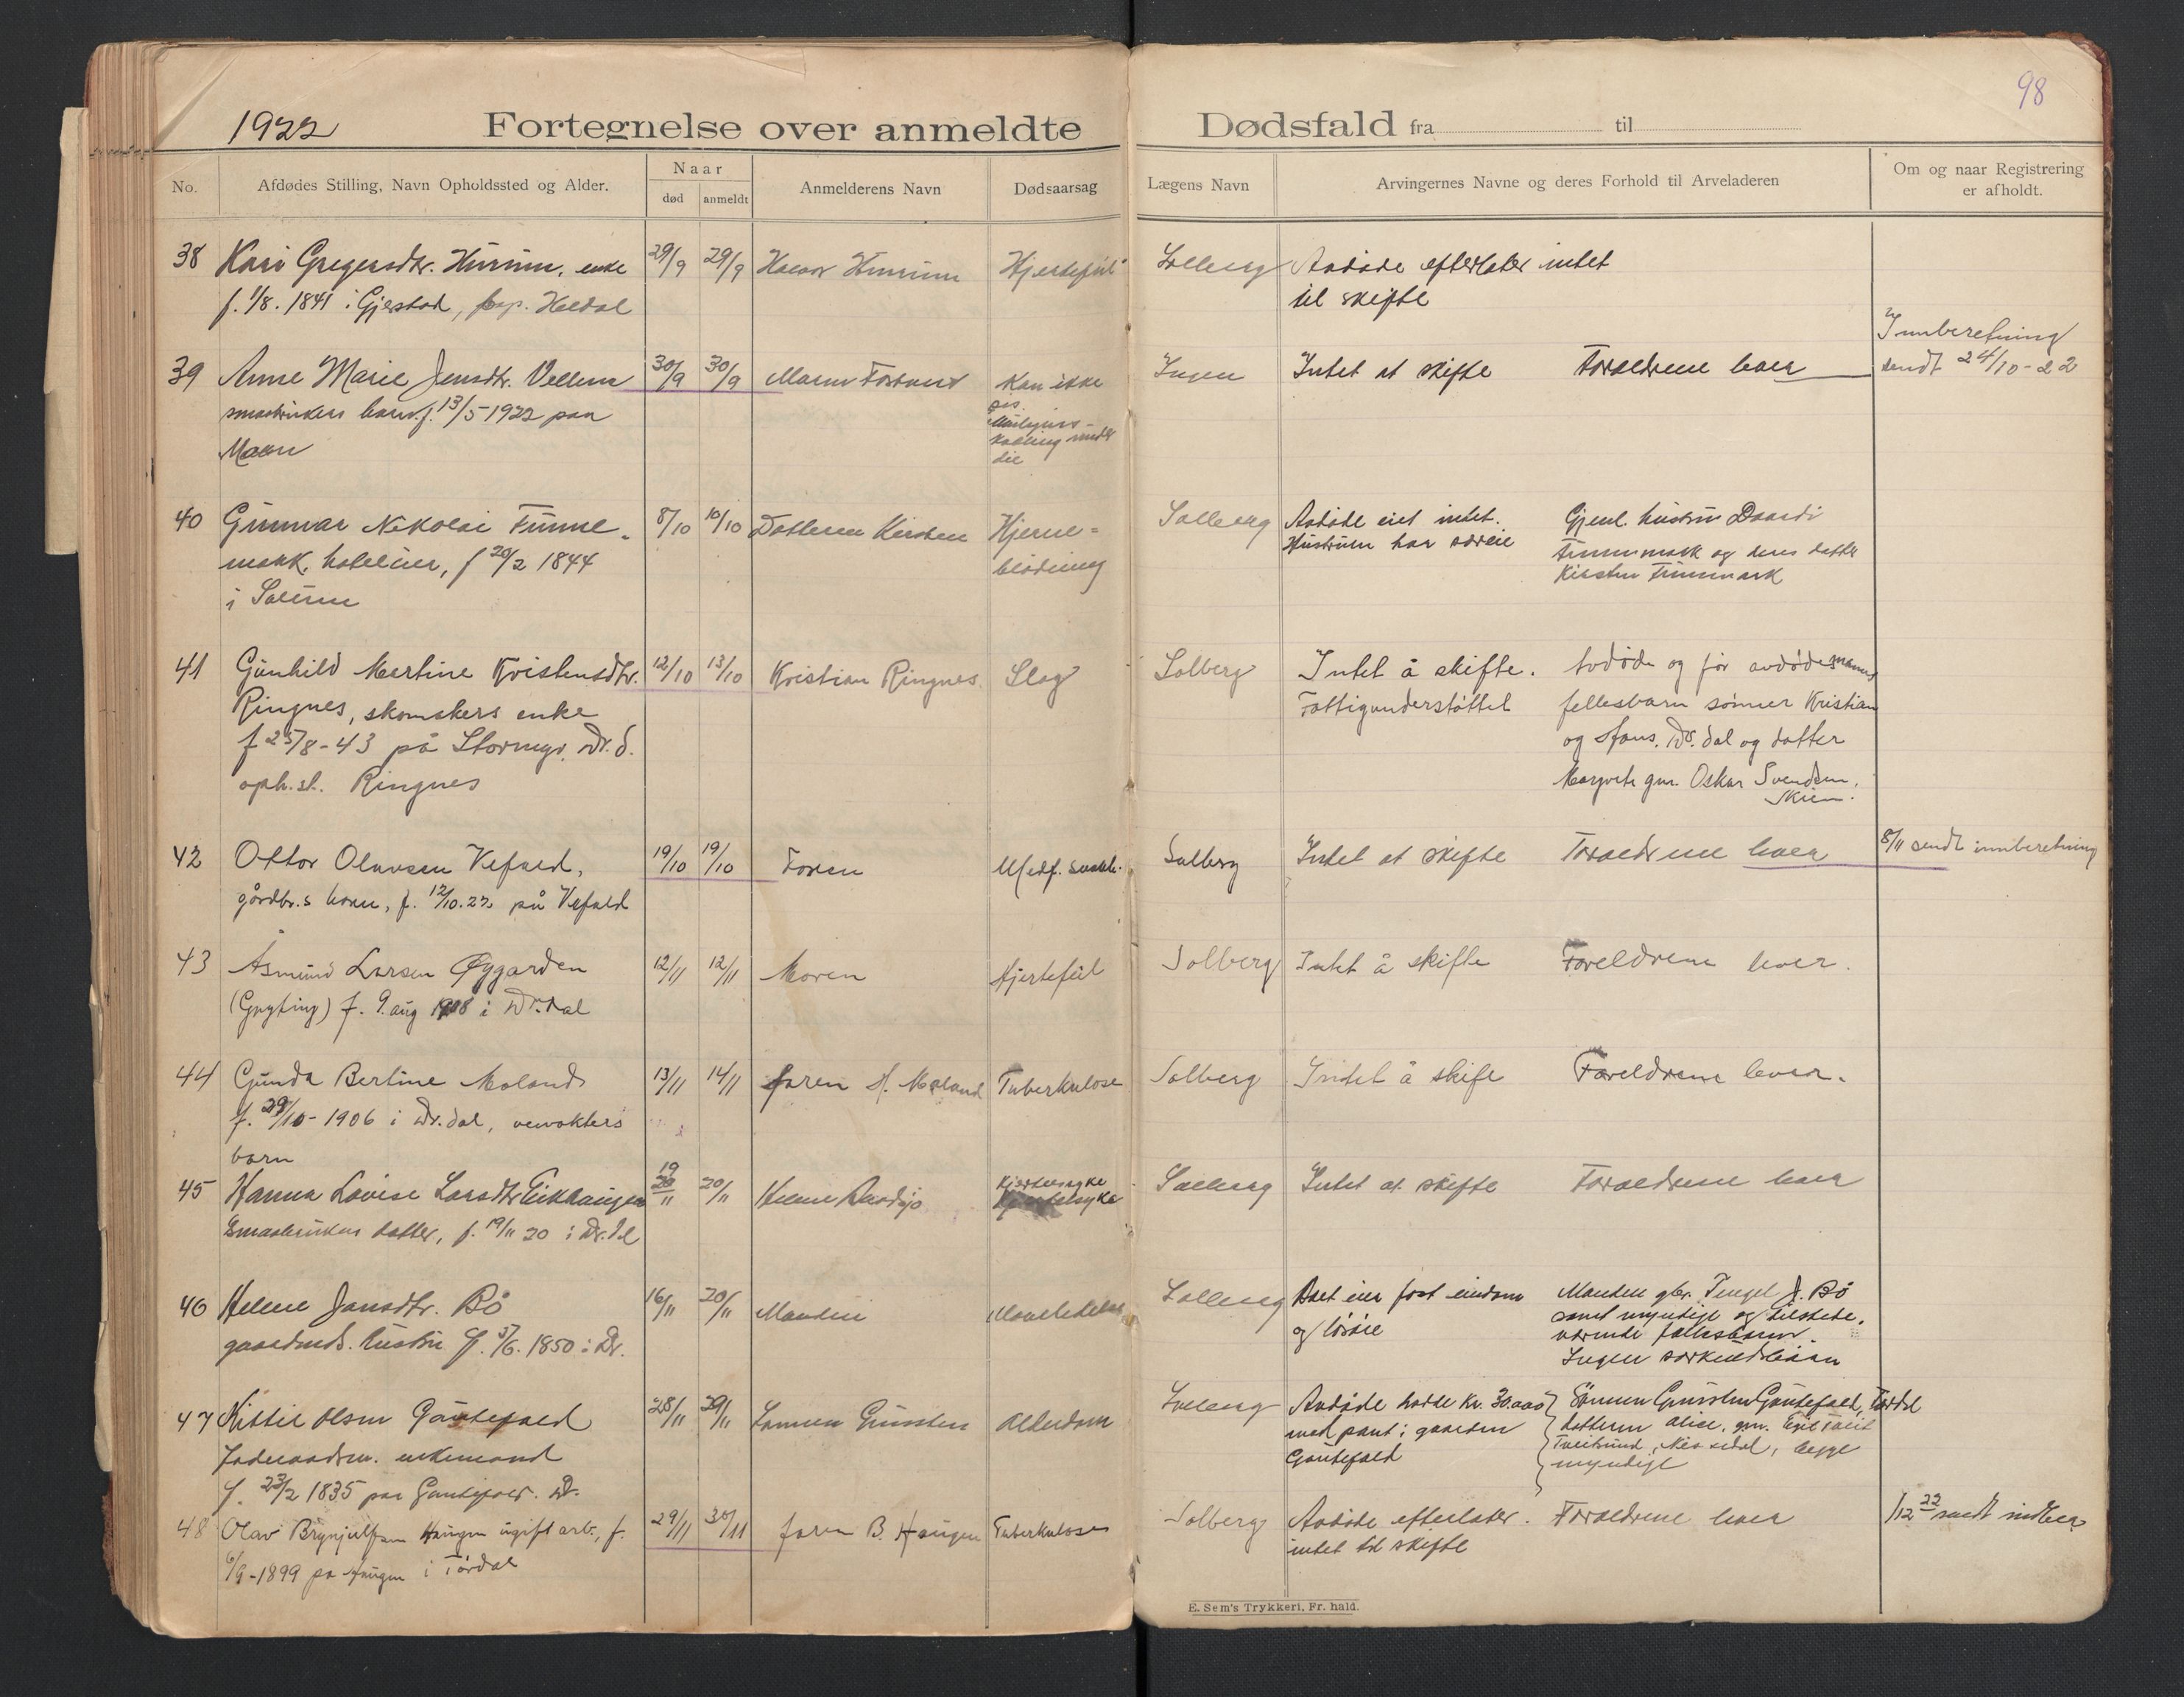 98
1922 Fortegnelse over anmeldte Dødsfald fra til
No.
Afdødes Stilling, Navn Opholdssted og Alder.
Naar
død
anmeldt
Anmelderens Navn
Dødsaarsag
Lægens Navn
Arvingernes Navne og deres Forhold til Arveladeren
Om og naar Registrering
er afholdt.
38 Kari Gregersdtr. Hurum, enke 29/9 29/9 Hurum Hjertefeil Solberg Avdøde efterlater intet
f. 1/8. 1841 i Gjerstad, Heldal til skifte
Innberetning
39 Anne Marie Jensdtr. Vellem 30/9 30/9 Kan ikke Ingen Intet at skifte Foraeldrene lever sendt 24/10-22
smaabrukers barn f. 13/5 1922 paa
40 Gunnar Nikolai Finne- 8/10 10/10 Datteren Kirsten Hjerne- Solberg Avdøde eiet intet. Gjenl. hustru
mark, hotelier, f 20/2 1844 blødning Hustruen har særeie Finnemark og deres datter
i Kirsten Finnmark
41 Gunhild Martine Kristensdtr. 12/10 13/10 Kristian Ringnes Slag Solberg Intet å skifte. Avdøde og før avdøde manns
Ringnes, skomakers enke Fattigunderstøttet fellesbarn sønner Kristian
f 25/8-43 på Dr.d. og Hans, Dr.dal og datter
oph.st. Ringnes Margrete gm. Oskar Svendsen,
Skien.
42 Ottar Olavsen Vefald, 19/10 19/10 Faren Medf. svakh. Solberg Intet at skifte Foraeldrene lever 8/11 sendt innberetning
gårdbr.s barn, f. 12/10.22 på Vefald
43 Åsmund Larsen Øygarden 12/11 12/11 Moren Hjertefeil Solberg Intet å skifte Foreldrene lever.
f. 9. aug i Dr.dal
44 Gunda Bertine Moland 13/11 14/11 faren H. Moland Tuberkulose Solberg Intet å skifte Foreldrene lever.
f. 29/10-1906 i Dr.dal, veivokters
barn
45 Hanna Lovise Larsdtr Eikhaugen 19 20/11 20/11 Kjertelsyke Solberg Intet at skifte Foraeldrene lever
Smaabrukers datter, f. 19/11 20 i Dr.dl
46 Helene Jansdtr. Bö 16/11 20/11 Manden Solberg Boet eier fast eiendom Manden gbr. J. Bö
gaardmds. hustru f. 5/6. 1850 i Dr. og løsøre samt myndige og tilstede-
værende fellesbarn.
Ingen særkuldsbarn
47 Kittil Olsen Gautefald 28/11 29/11 Sønnen Gunsten Alderdom Solberg Avdøde hadde kr. 30.000 Sønnen Gunsten Gautefald, Tørdal
enkemand med pant i gaarden datteren Alice, gm.
f. 23/2 1835 paa Gautefald. Dr. Gautefald Tveitsund, Nissedal, begge
myndige
48 Olav Brynjulfsen Haugen ugift arb., f. 29/11 30/11 faren B. Haugen Tuberkulose Solberg Avdøde efterlater Foraeldrene lever 1/12 22 sendt
6/9-1899 på Haugen i Tørdal intet til skifte
E. Sem's Trykkeri, Fr. hald.